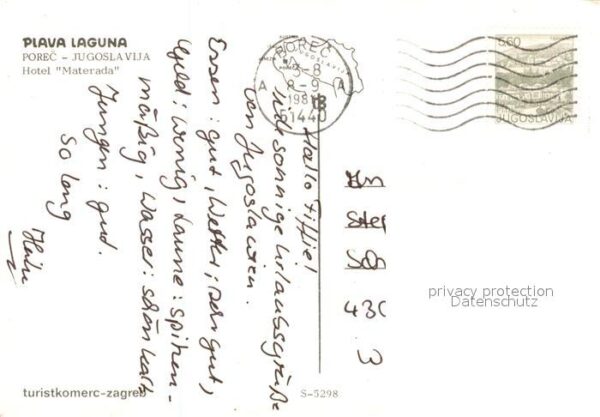 PLAVA LAGUNA
POREČ – JUGOSLAVIJA
Hotel "Materada"
POREČ
JUGOSLAVIJA
3-8
A 8-9 A
1981
51440
5.60
JUGOSLAVIJA
Hallo
sonnige Urlaubsgrüße
von Jugoslawien.
Essen: gut, Wetter: sehr gut,
Geld: wenig, Laune: spitzen-
mäßig, Wasser:
Jungen: gut.
So long
430
3
privacy protection
Datenschutz
turistkomerc-zagreb
S-5298